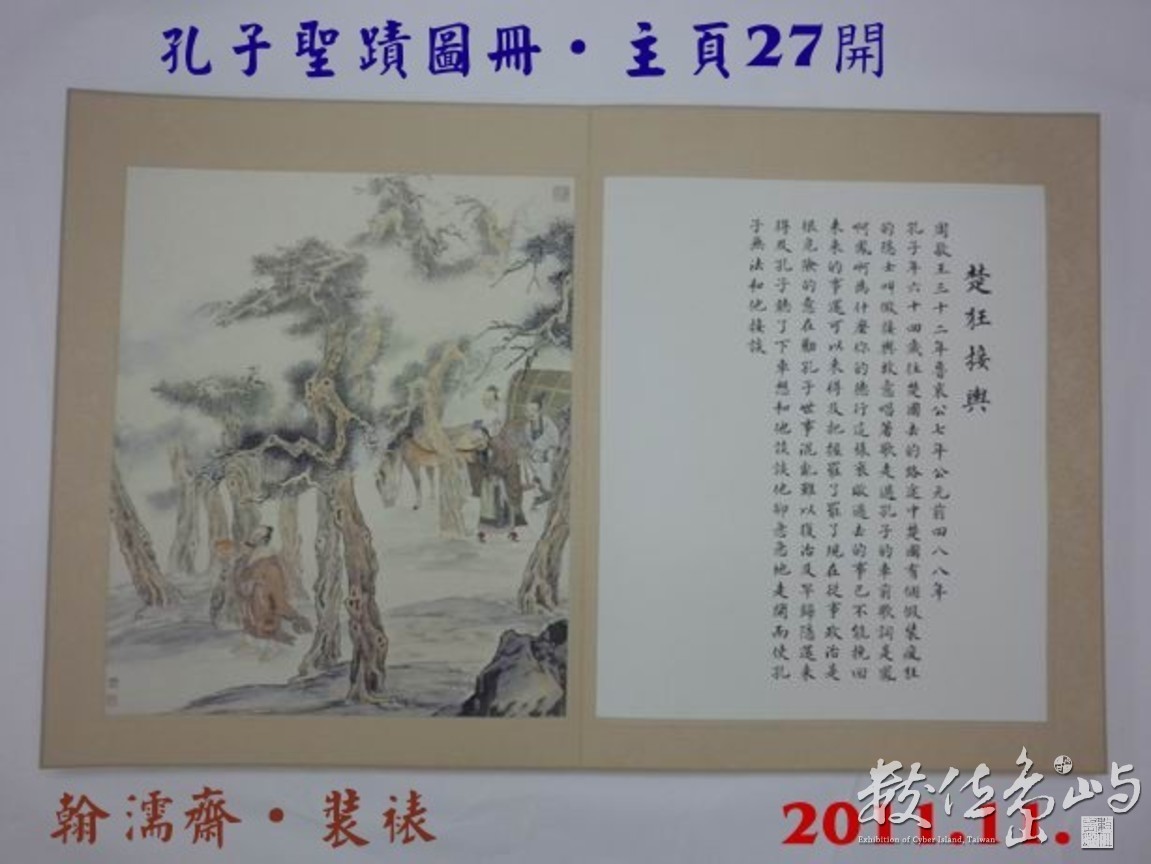 孔子聖蹟圖冊・主頁27開
楚狂接輿
周敬王三十二年魯哀公七年公元前四八八年
孔子年六十四歲往楚國去的路途中楚國有個假裝瘋狂
的隱士叫做接輿故意唱著歌走過孔子的車前歌詞是鳳
啊鳳啊為什麼你的德行這樣衰敝過去的事已不能挽回
未來的事還可以來得及把握罷了罷了現在從事政治是
很危險的意在勸孔子世事混亂難以復治及早歸隱還來
得及孔子聽了下車想和他談談他卻急急地走開而使孔
子無法和他接談
翰濡齋・裝裱
2011.11.
數位島嶼
Exhibition of Cyber Island, Taiwan